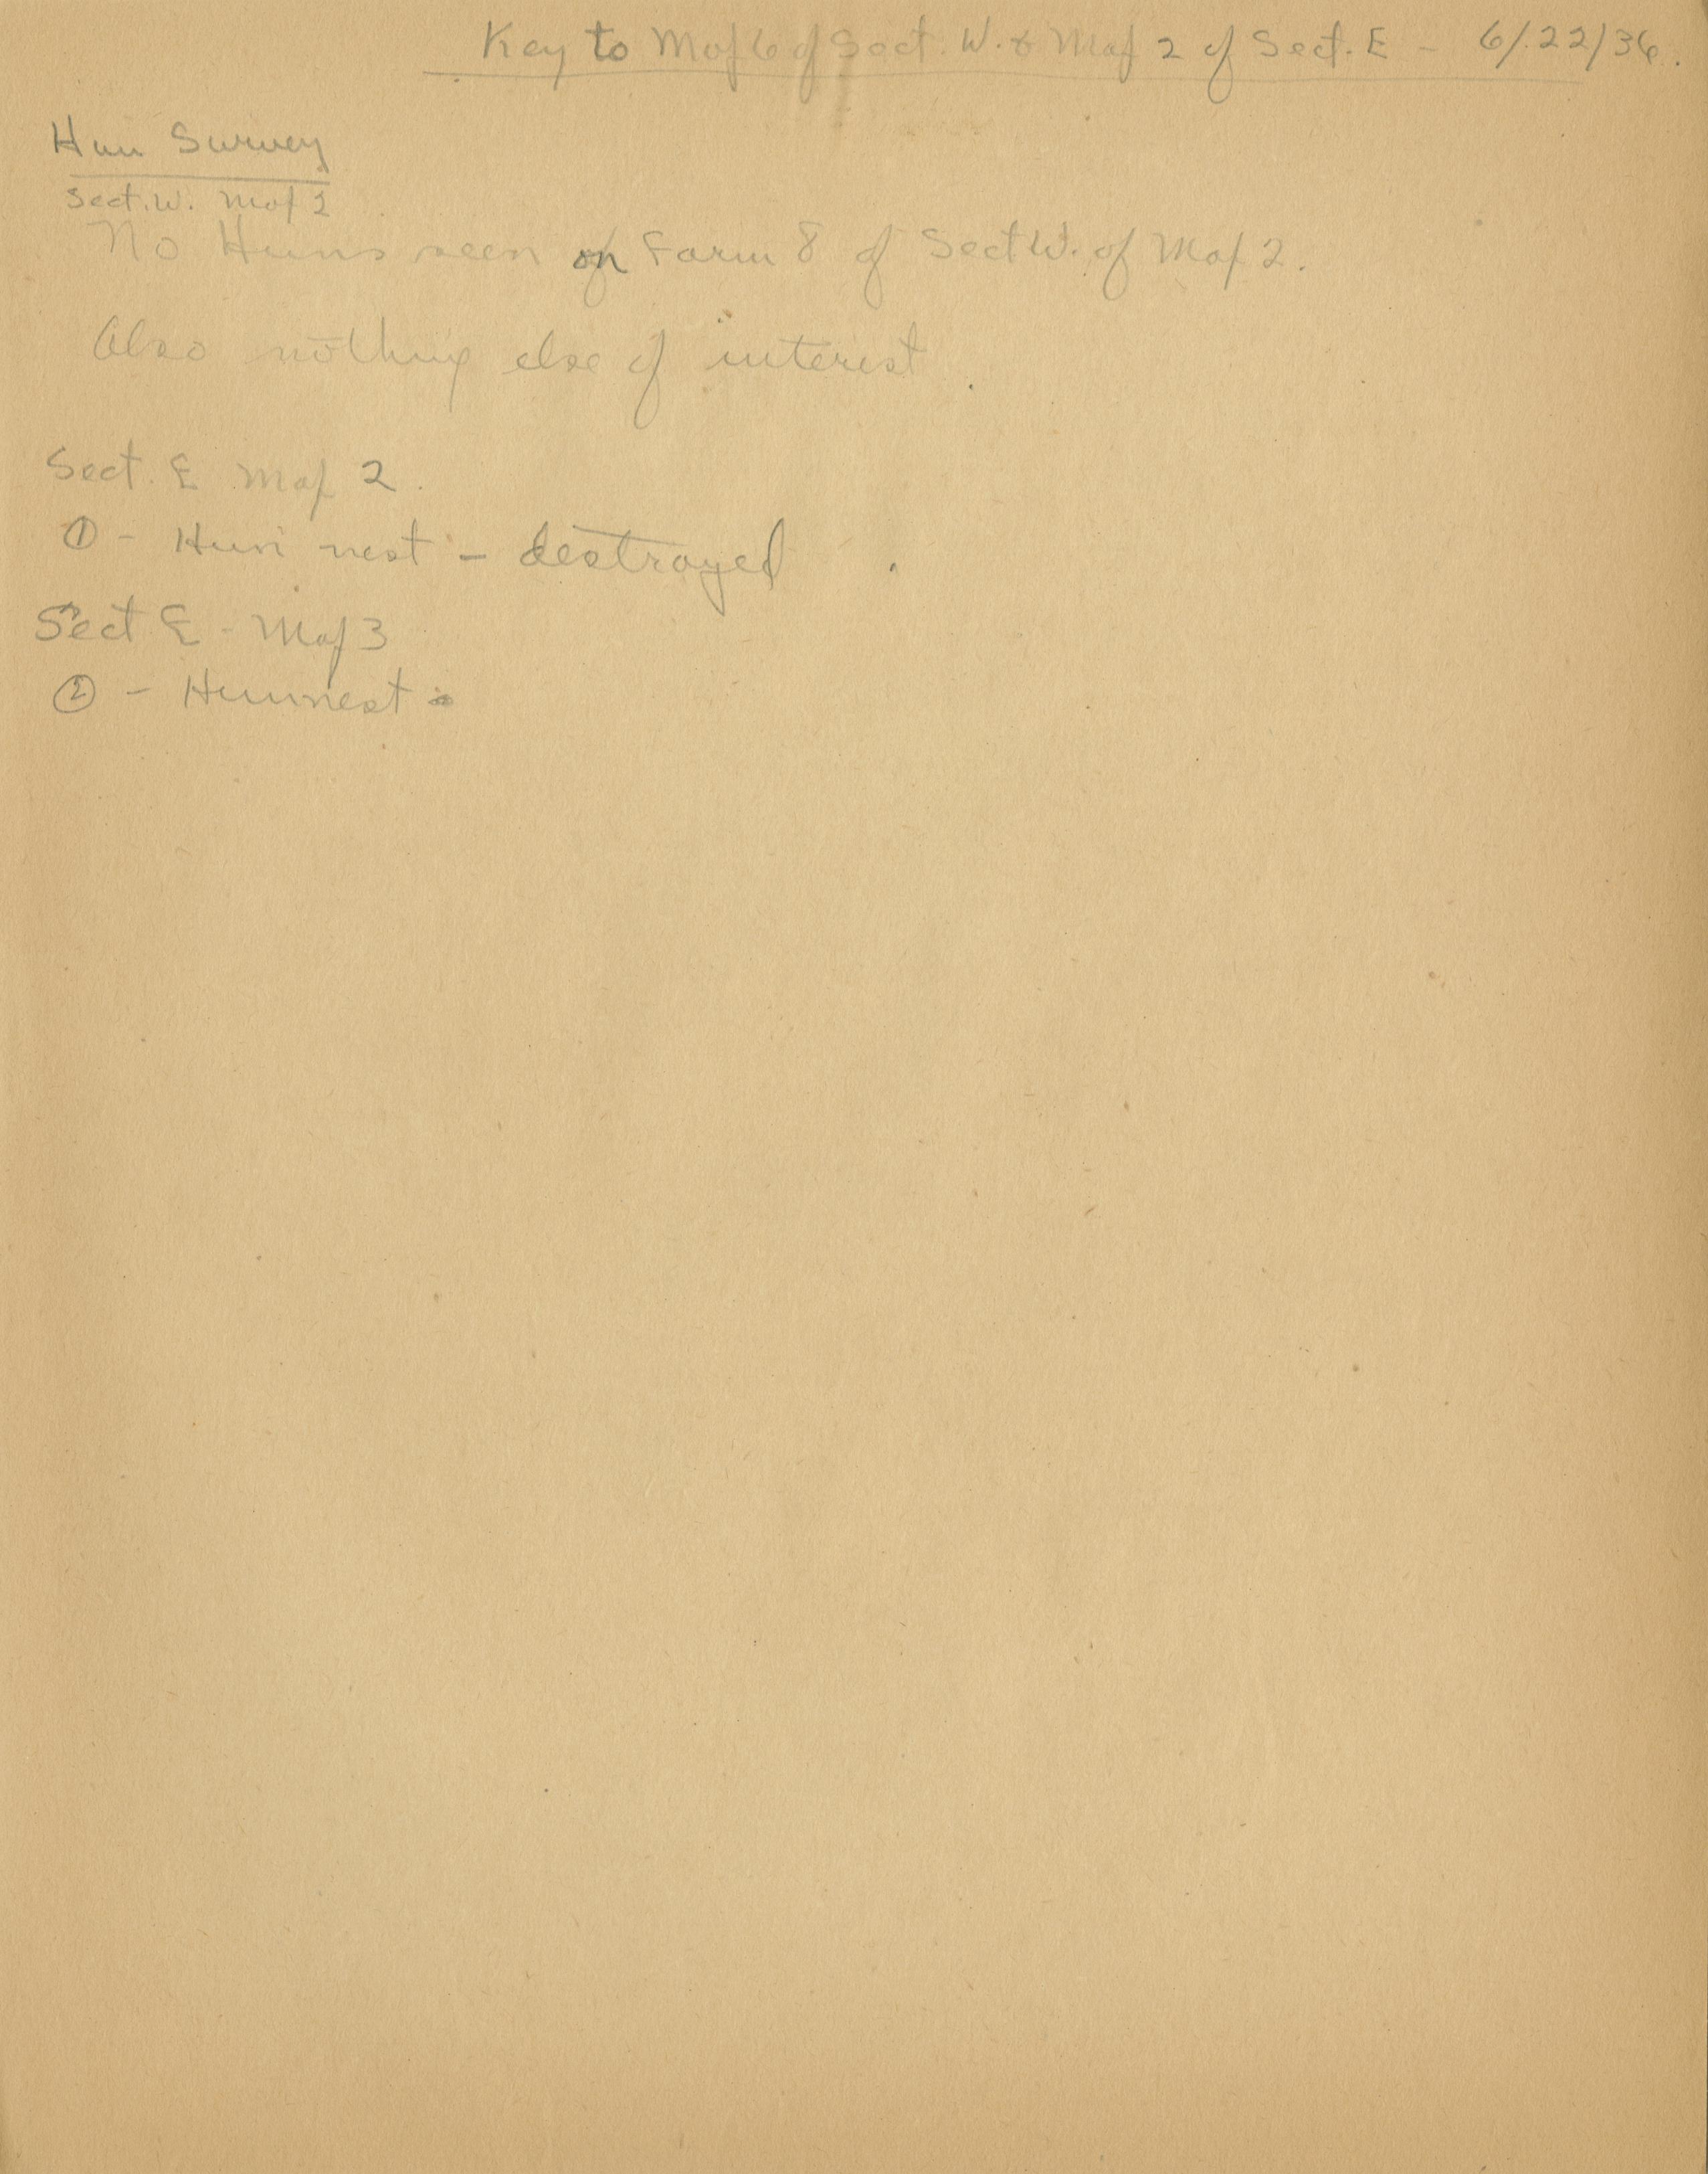 Key to Map 6 of Sect. W. & Map 2 of Sect. E - 6/22/36.
Hun Survey
Sect. W. Map 2
No Huns seen on Farm 8 of Sect W. of Map 2.
Also nothing else of interest.
Sect. E Map 2.
① - Hun nest - destroyed.
Sect E - Map 3
② - Hun nest